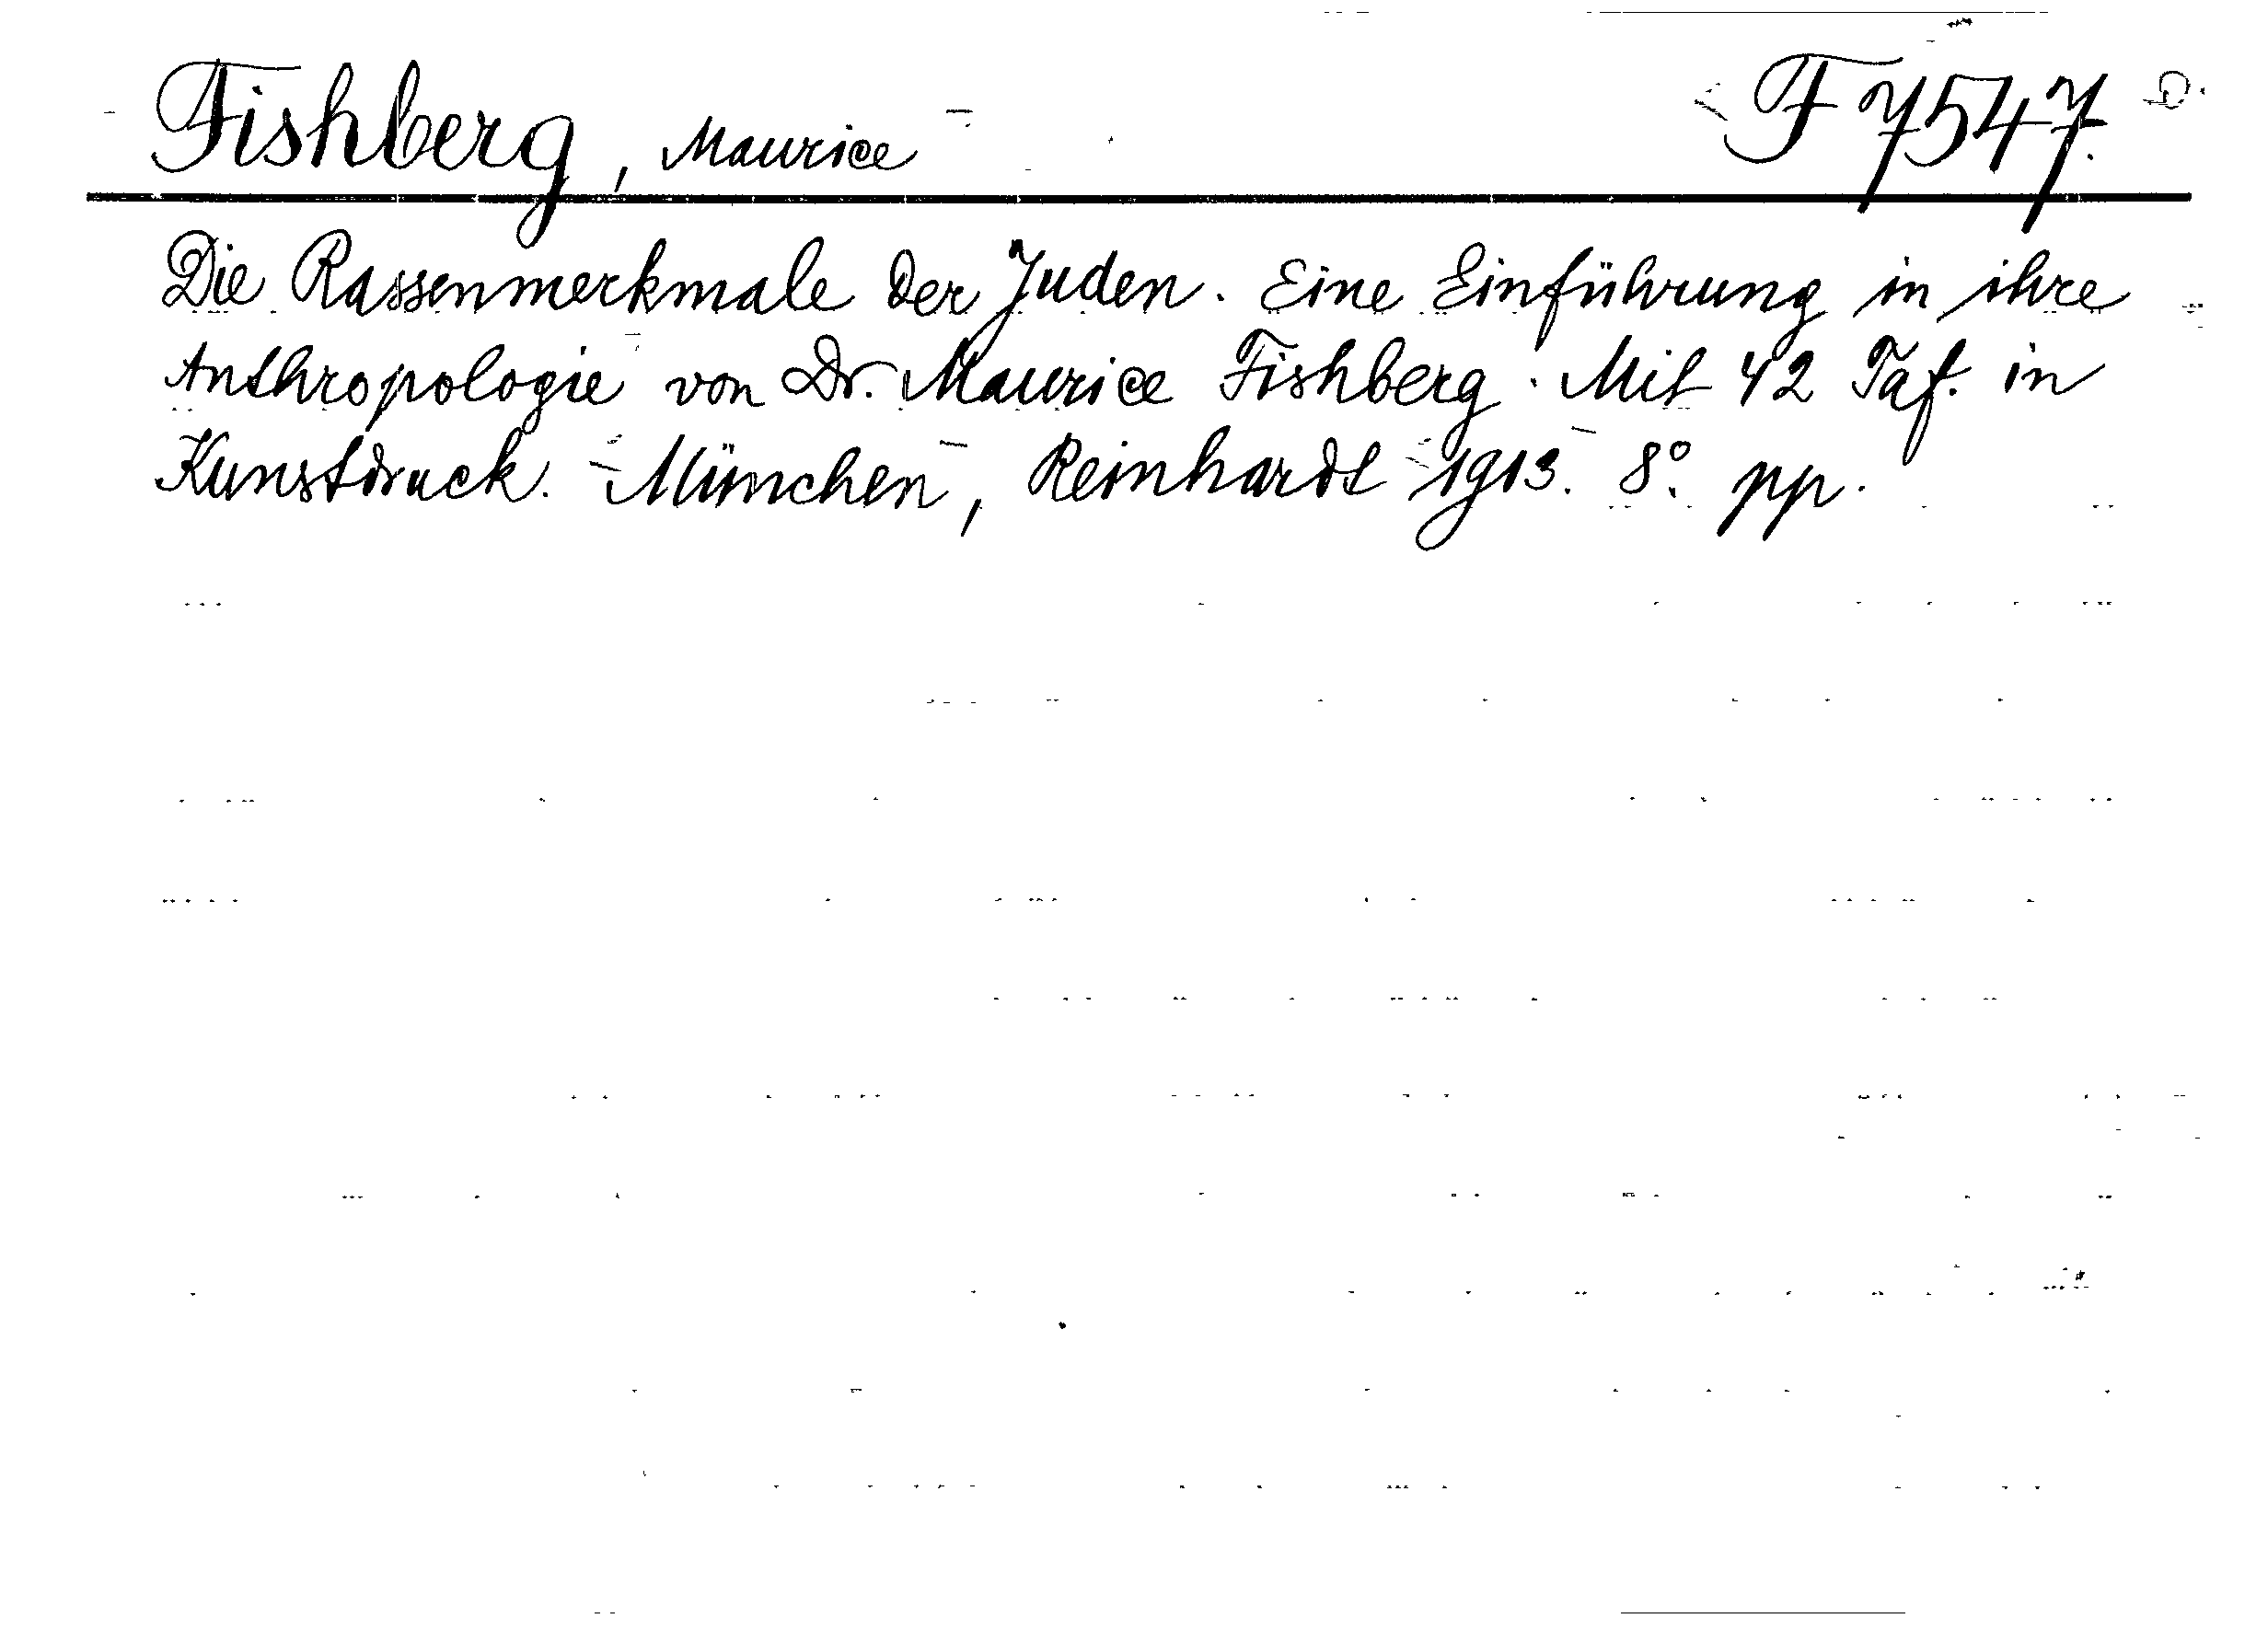 Fishberg, Maurice F 7547.
Die Rassenmerkmale der Juden. Eine Einführung in ihre
Anthropologie von Dr. Maurice Fishberg. Mit 42 Taf. in
Kunstdruck. München, Reinhardt 1913. 8°. pp.